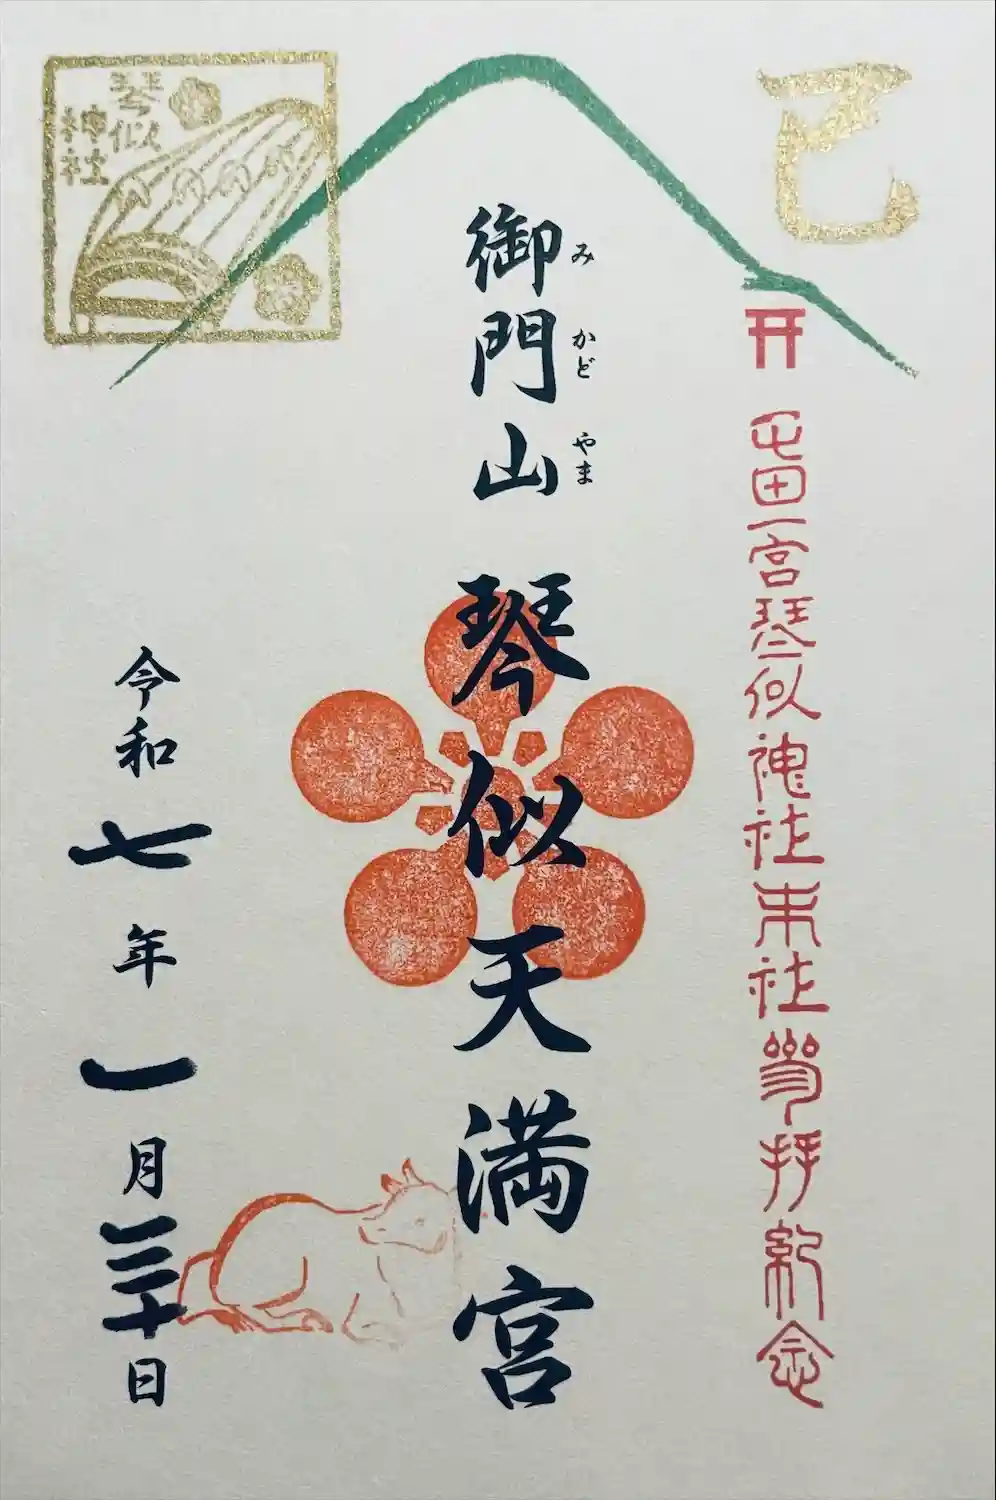 巳
屯田一宮琴似神社末社参拝紀念
御門山 琴似天満宮
みかどやま
琴似
神社
令和七年一月三十日